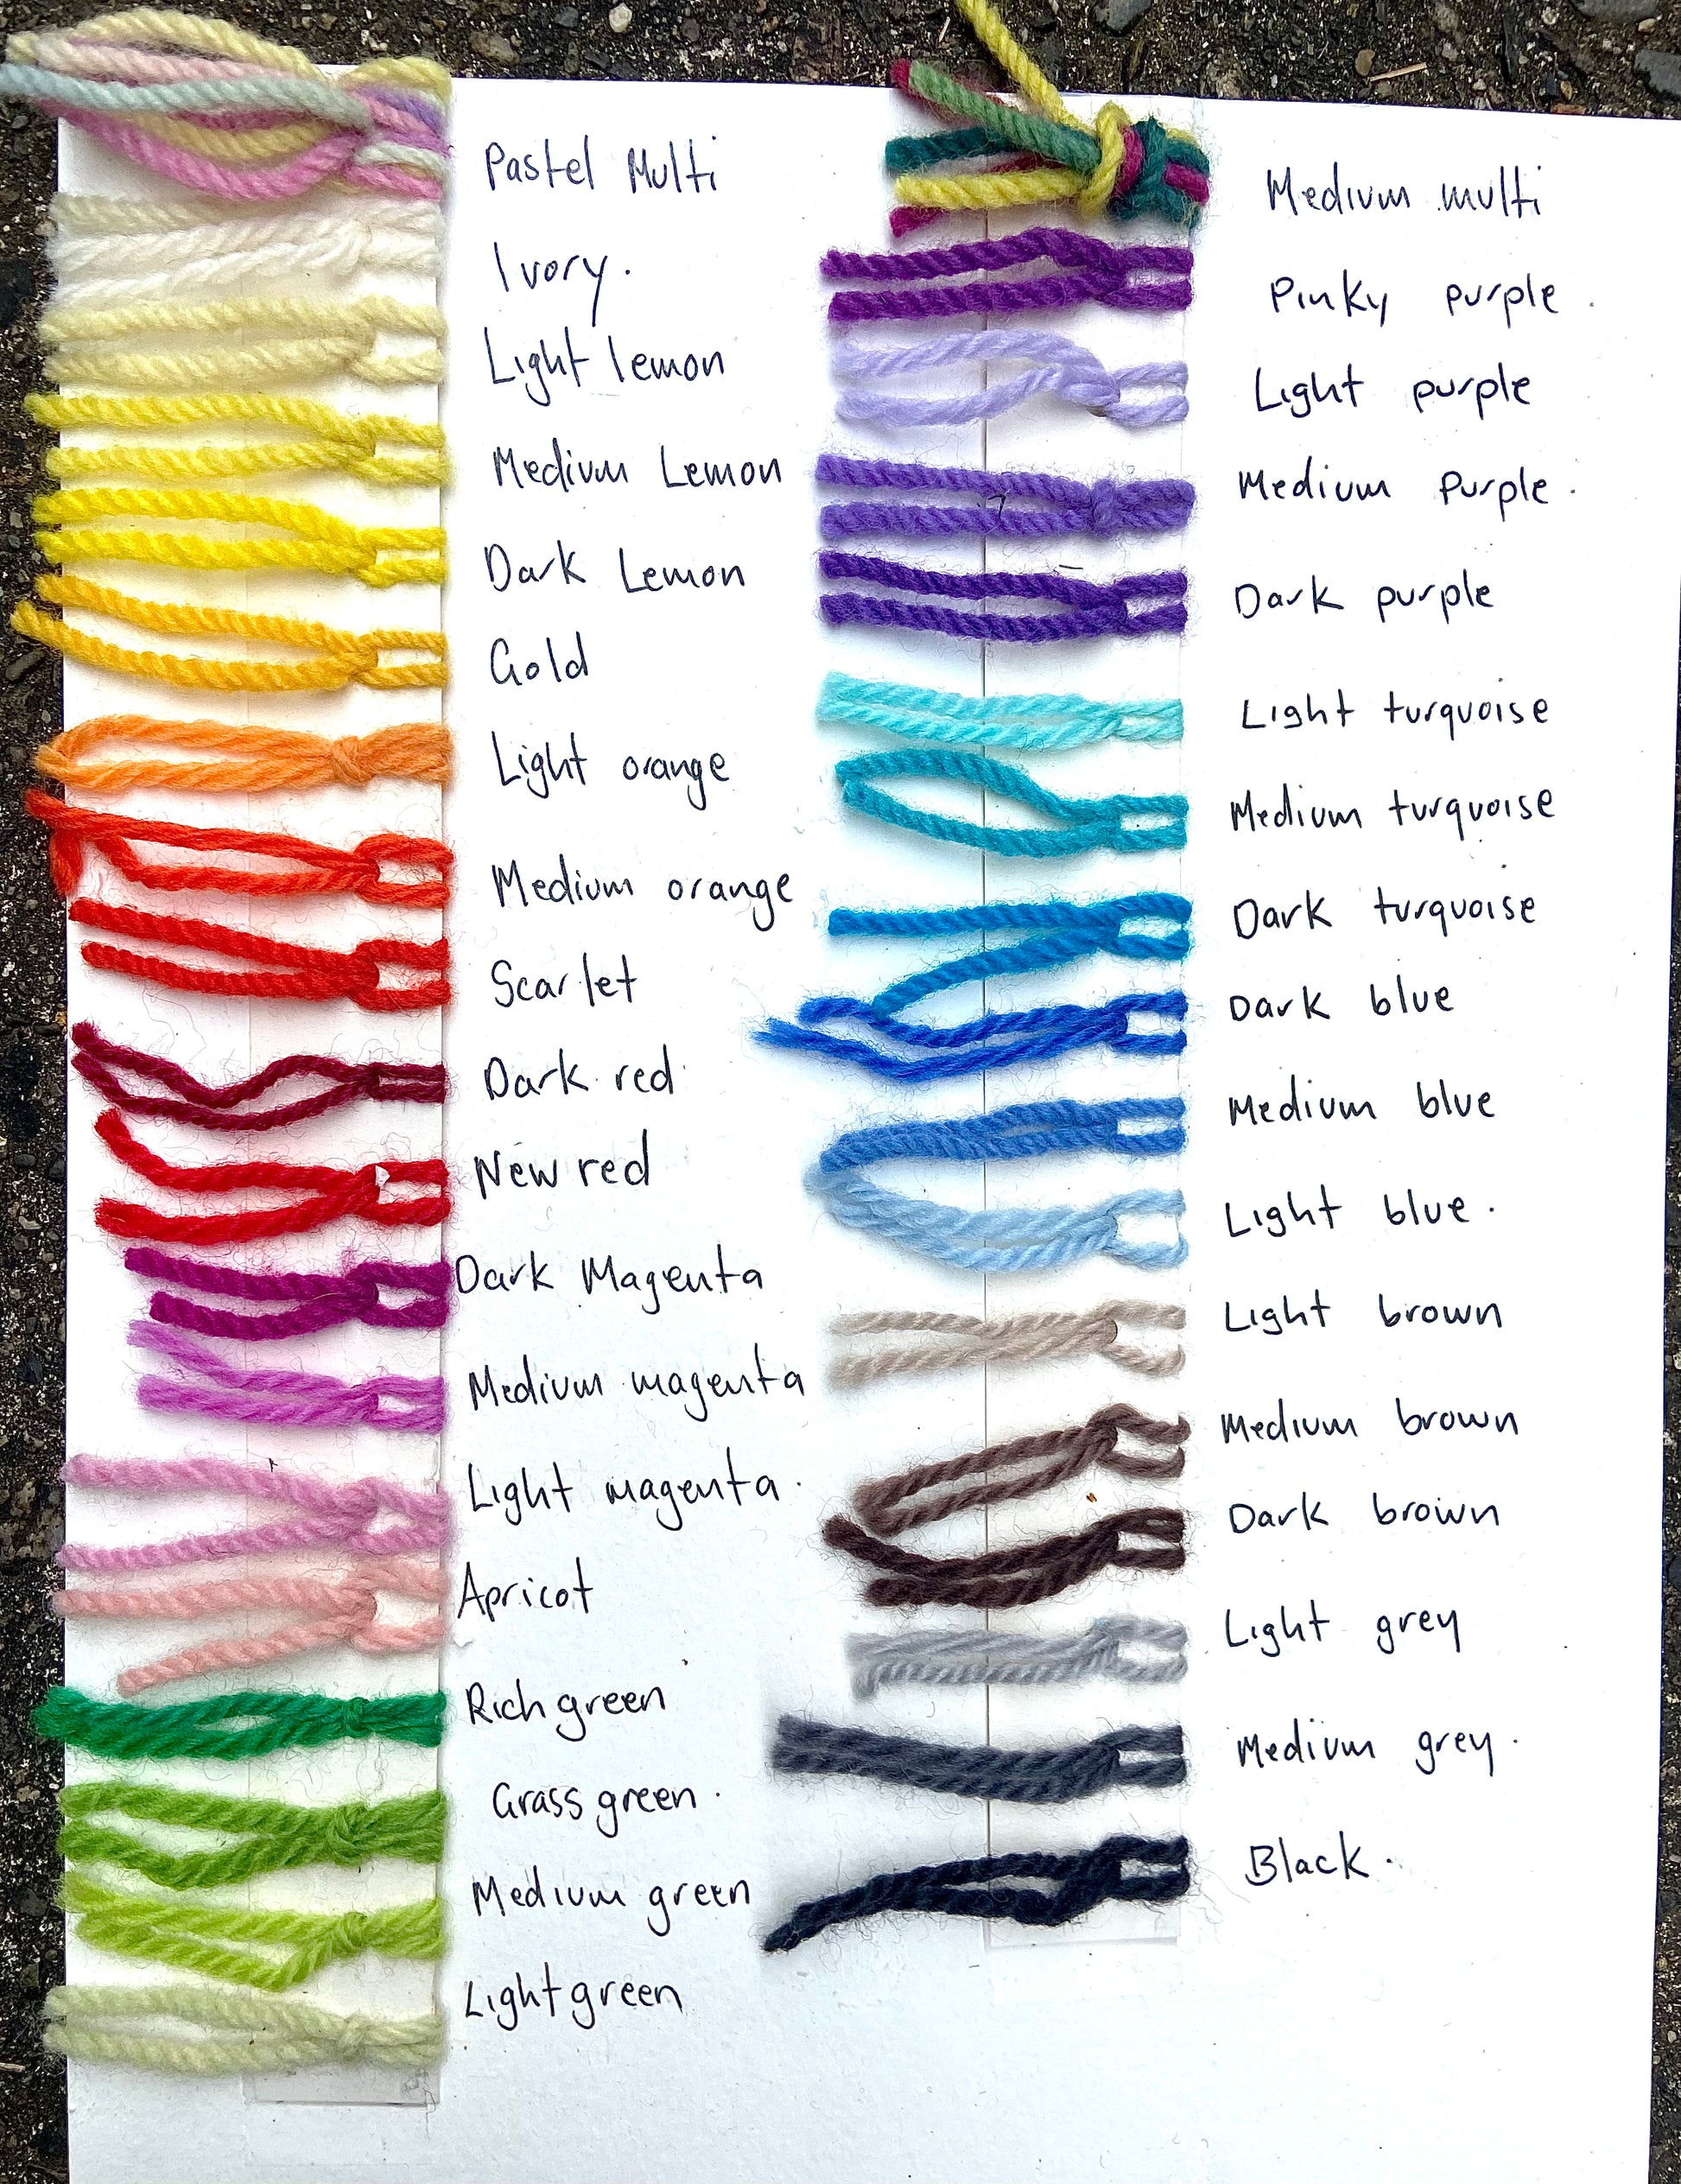 Pastel Multi
Ivory.
Light lemon
Medium Lemon
Dark Lemon
Gold
Light orange
Medium orange
Scarlet
Dark red
New red
Dark Magenta
Medium magenta
Light magenta.
Apricot
Rich green
Grass green.
Medium green
Light green
Medium multi
Pinky purple.
Light purple
Medium Purple.
Dark purple
Light turquoise
Medium turquoise
Dark turquoise
Dark blue
Medium blue
Light blue.
Light brown
Medium brown
Dark brown
Light grey
Medium grey.
Black.